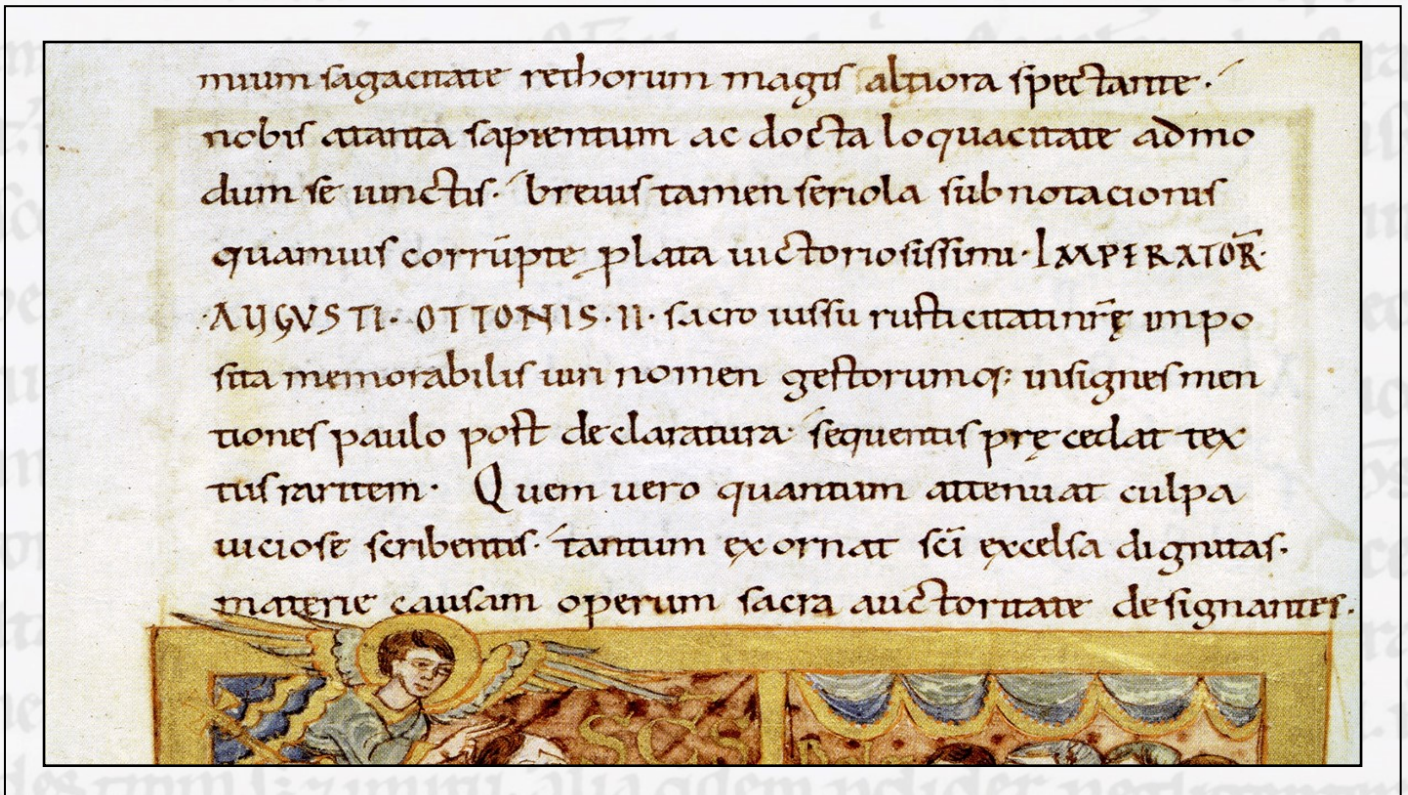 mium sagacitate rethorum magis altiora spectante·
nobis atanta sapientum ac docta loquacitate admo
dum se iunctis· breuis tamen seriola subnotacionis
quamuis corrupte plata uictoriosissimi· IMPERATOR̄·
·AUGVSTI· OTTONIS·II· sacro iussu rusticitatinr̄ę impo
sita memorabilis uiri nomen gestorumq; insignes men
tiones paulo post declaratura sequentis pręcedat tex
tus raritem· Quem uero quantum attenuat culpa
uiciose scribentis· tantum exornat sc̄i excelsa dignitas·
materie causam operum sacra auctoritate designantes·
SCS